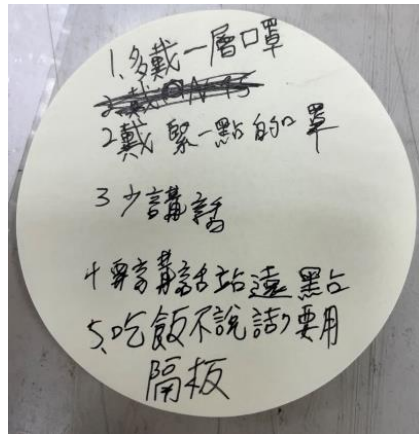 1.多戴一層口罩
2.戴N95
2戴緊一點的口罩
3少講話
4要講話站遠點
5.吃飯不說話,要用
隔板